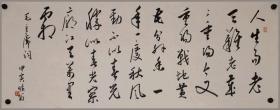 人生易老
天难老岁
々重阳今又
重阳战地黄
花分外香一
年一度秋风
劲不似春光
胜似春光寥
廓江天万里
霜
毛主席词